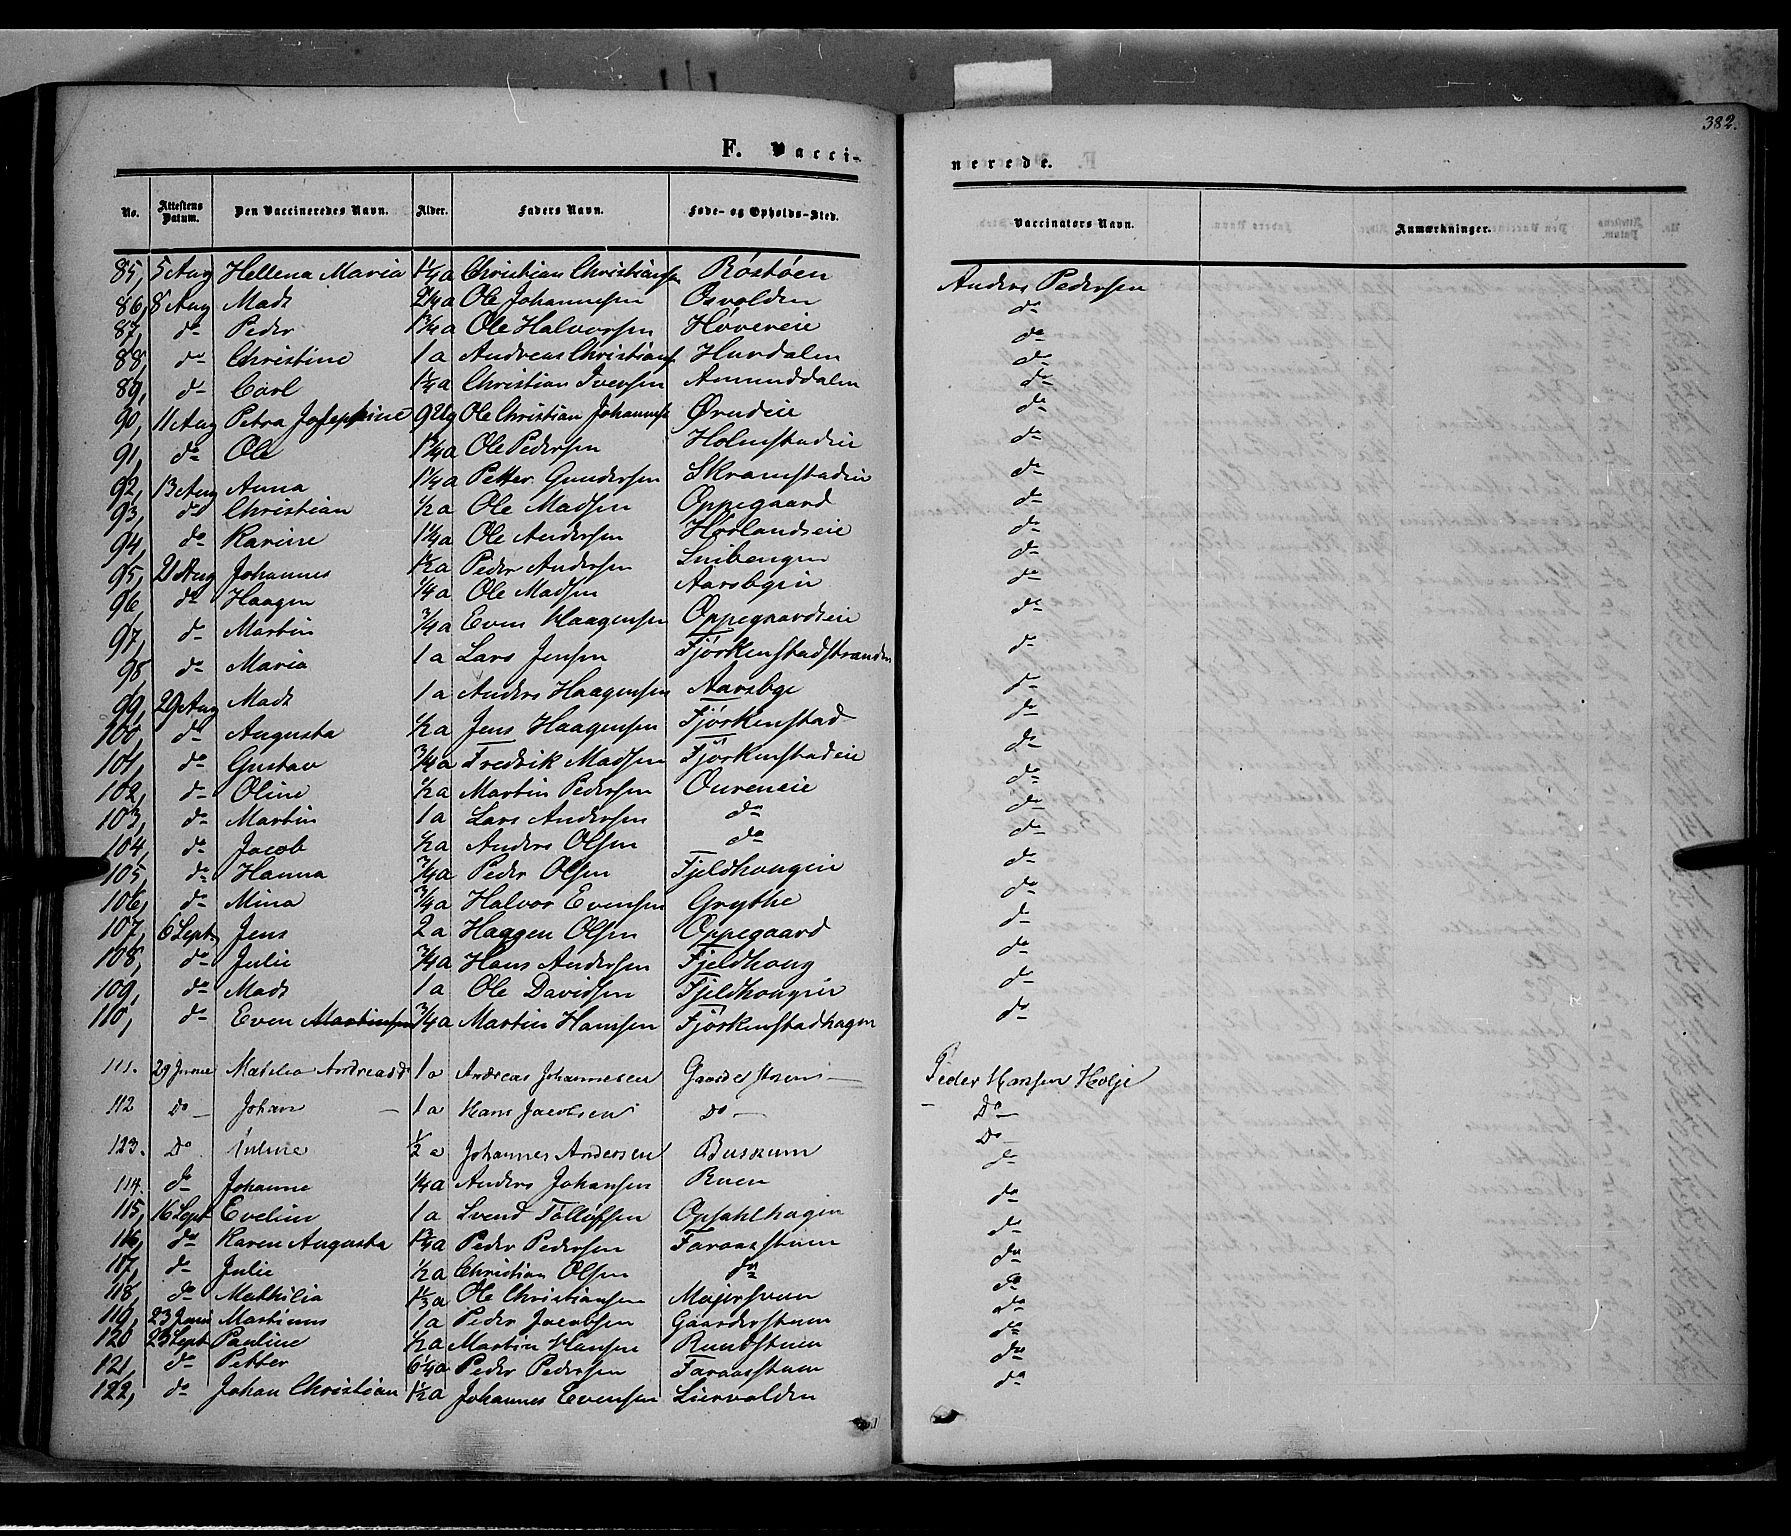 382.
F. Vacci-
nerede.
No. Attestens Datum. Den Vaccineredes Navn. Alder. Faders Navn. Føde- og Opholds-Sted. Vaccinators Navn. Anmærkninger.
85, 5 Aug Hellena Maria 1¼ a Christian Christians Röstöen Anders Pedersen
86, 8 Aug Mads 2¼ a Ole Johannesen Osvolden do
87, do Peder 1¾ a Ole Halvorsen Høvereie do
88, do Christine 1 a Andreas Christians Hurdalen do
89, do Carl 1¼ a Christian Iversen Amunddalen do
90, 11 Aug Petra Josephine 9 Ug Ole Christian Johannes Ørudeie do
91, do Ole 1¾ a Ole Pedersen Holmstadeie do
92, 13 Aug Anna 1¼ a Petter Gundersen Skramstadeie do
93, do Christian ½ a Ole Madsen Oppegaard do
94, do Karine 1¼ a Ole Andersen Hørlandseie do
95, 21 Aug Johannes 1½ a Peder Andersen Snibengen do
96, do Haagen ¼ a Ole Madsen Aarsbgeie do
97, do Martin ¾ a Even Haagensen Oppegaardseie do
98, do Maria 1 a Lars Jensen Fjörkenstadstranden do
99, 29 Aug Mads 1 a Anders Haagensen Aarsbge do
100, do Augusta ½ a Jens Haagensen Fjörkenstad do
101, do Gustav ¾ a Fredrik Madsen Fjörkenstadeie do
102, do Oline ½ a Martin Pedersen Oureneie do
103, do Martin 1 a Lars Andersen do do
104, do Jacob ½ a Anders Olsen do do
105, do Hanna ¾ a Peder Olsen Fjeldhougein do
106, do Mina ¾ a Halvor Evensen Grythe do
107, 6 Sept. Jens 2 a Haagen Olsen Oppegaard do
108, do Julie ¾ a Hans Andersen Fjeldhoug do
109, do Mads 1 a Ole Davidsen Fjeldhougein do
110, do Even Martinsen ¾ a Martin Hansen Fjörkenstadhagen do
111. 29 Junie Matelia Andreasd 1 a Andreas Johannesen Gaarder Peder Hansen Holje
112 Do Johan 1 a Hans Jacobsen Do Do
123. Do Juline ½ a Johannes Andersen Busrum Do
114. do Johanne ¼ a Anders Johansen Ruen do
115, 16 Sept Eveline 1 a Svend Tolløfsen Opsahlhagen do
116, do Karen Augusta 1¾ a Peder Pedersen Faraasstuen do
117, do Julie ½ a Christian Olsen do do
118, do Mathilia 1⅓ a Ole Christiansen Majersveen do
119, 23 Juni Martinus 1 a Peder Jacobsen Gaarderstuen do
120 23 Sept Pauline ½ a Martin Hansen Rundstuen do
121, do Petter 6¼ a Peder Pedersen Faraasstuen do
122, do Johan Christian 1½ a Johannes Evensen Liervolden do